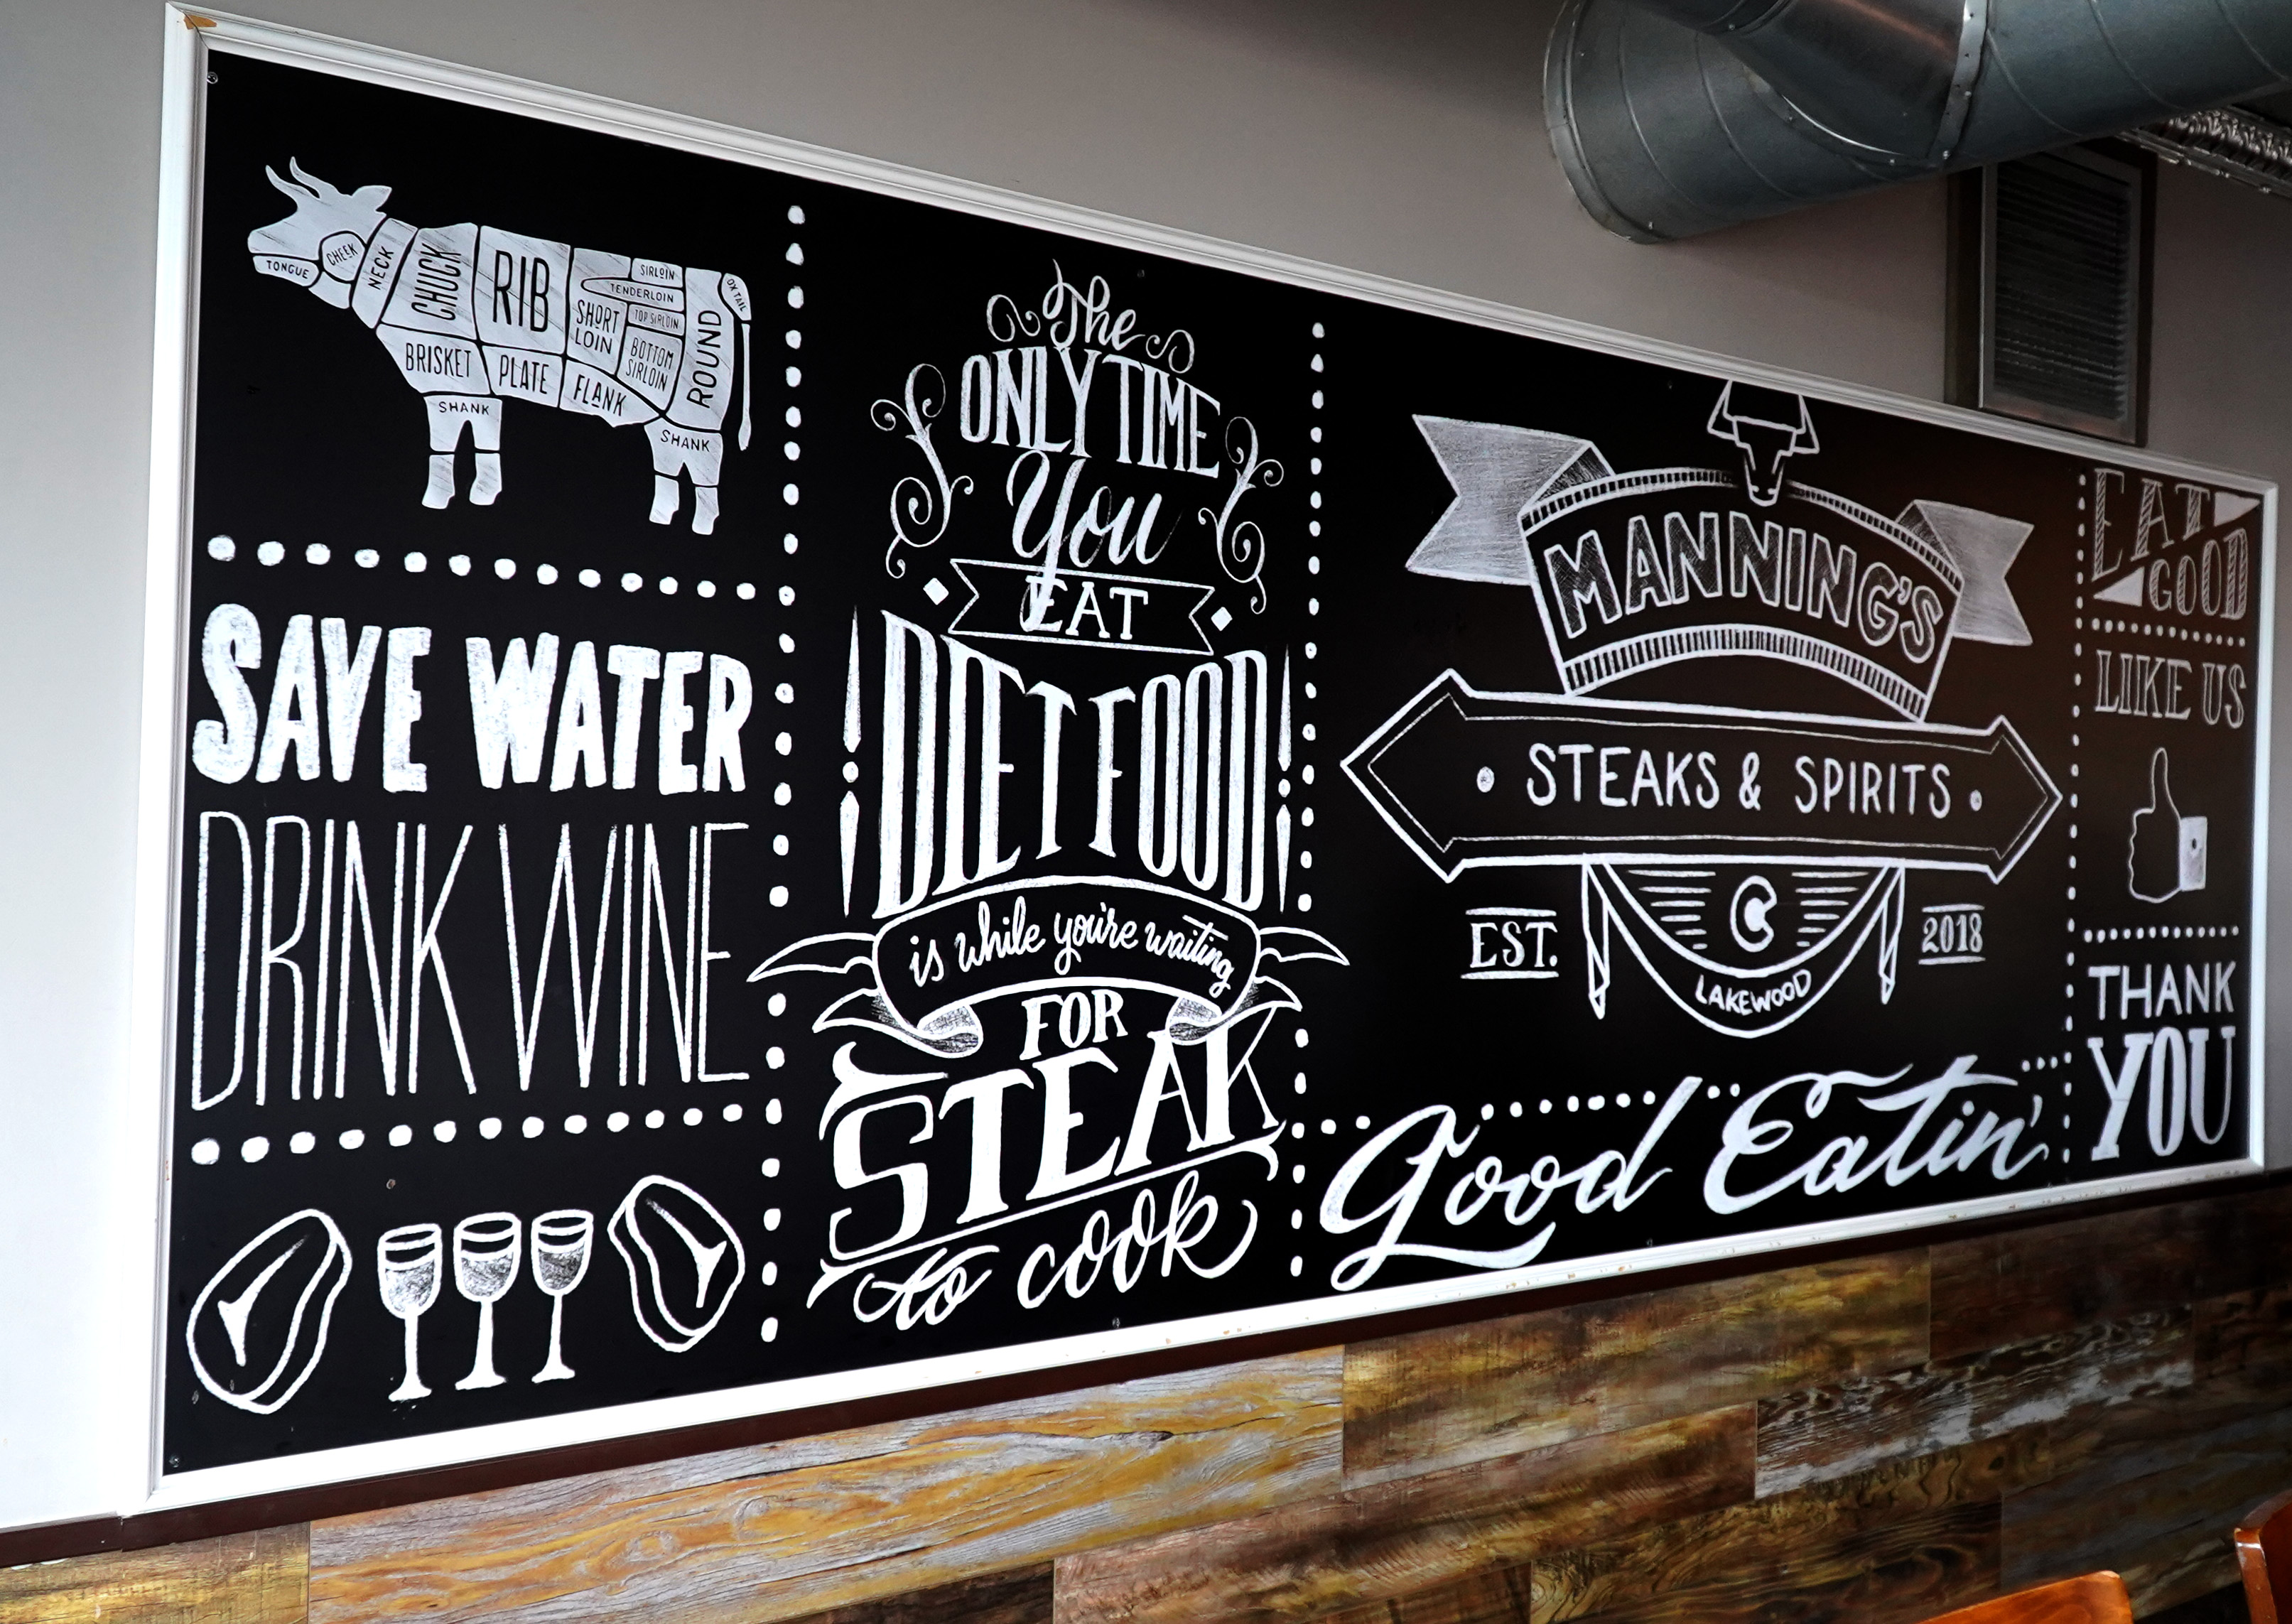 TONGUE
CHEEK
NECK
CHUCK
RIB
SHORT
LOIN
SIRLOIN
TENDERLOIN
TOP SIRLOIN
BOTTOM
SIRLOIN
ROUND
OX TAIL
BRISKET
PLATE
FLANK
SHANK
SHANK
SAVE WATER
DRINK WINE
The
ONLY TIME
You
EAT
DIET FOOD
is while you're waiting
FOR
STEAK
to cook
MANNING'S
STEAKS & SPIRITS
EST.
2018
C
LAKEWOOD
Good Eatin'
EAT
GOOD
LIKE US
THANK
YOU